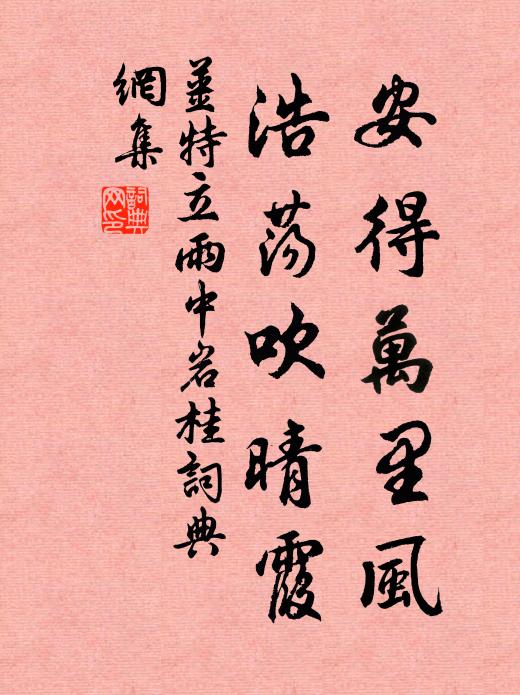 安得萬里風
浩荡吹晴霞
姜特立雨中岩桂詞典
網集
詞典
网印